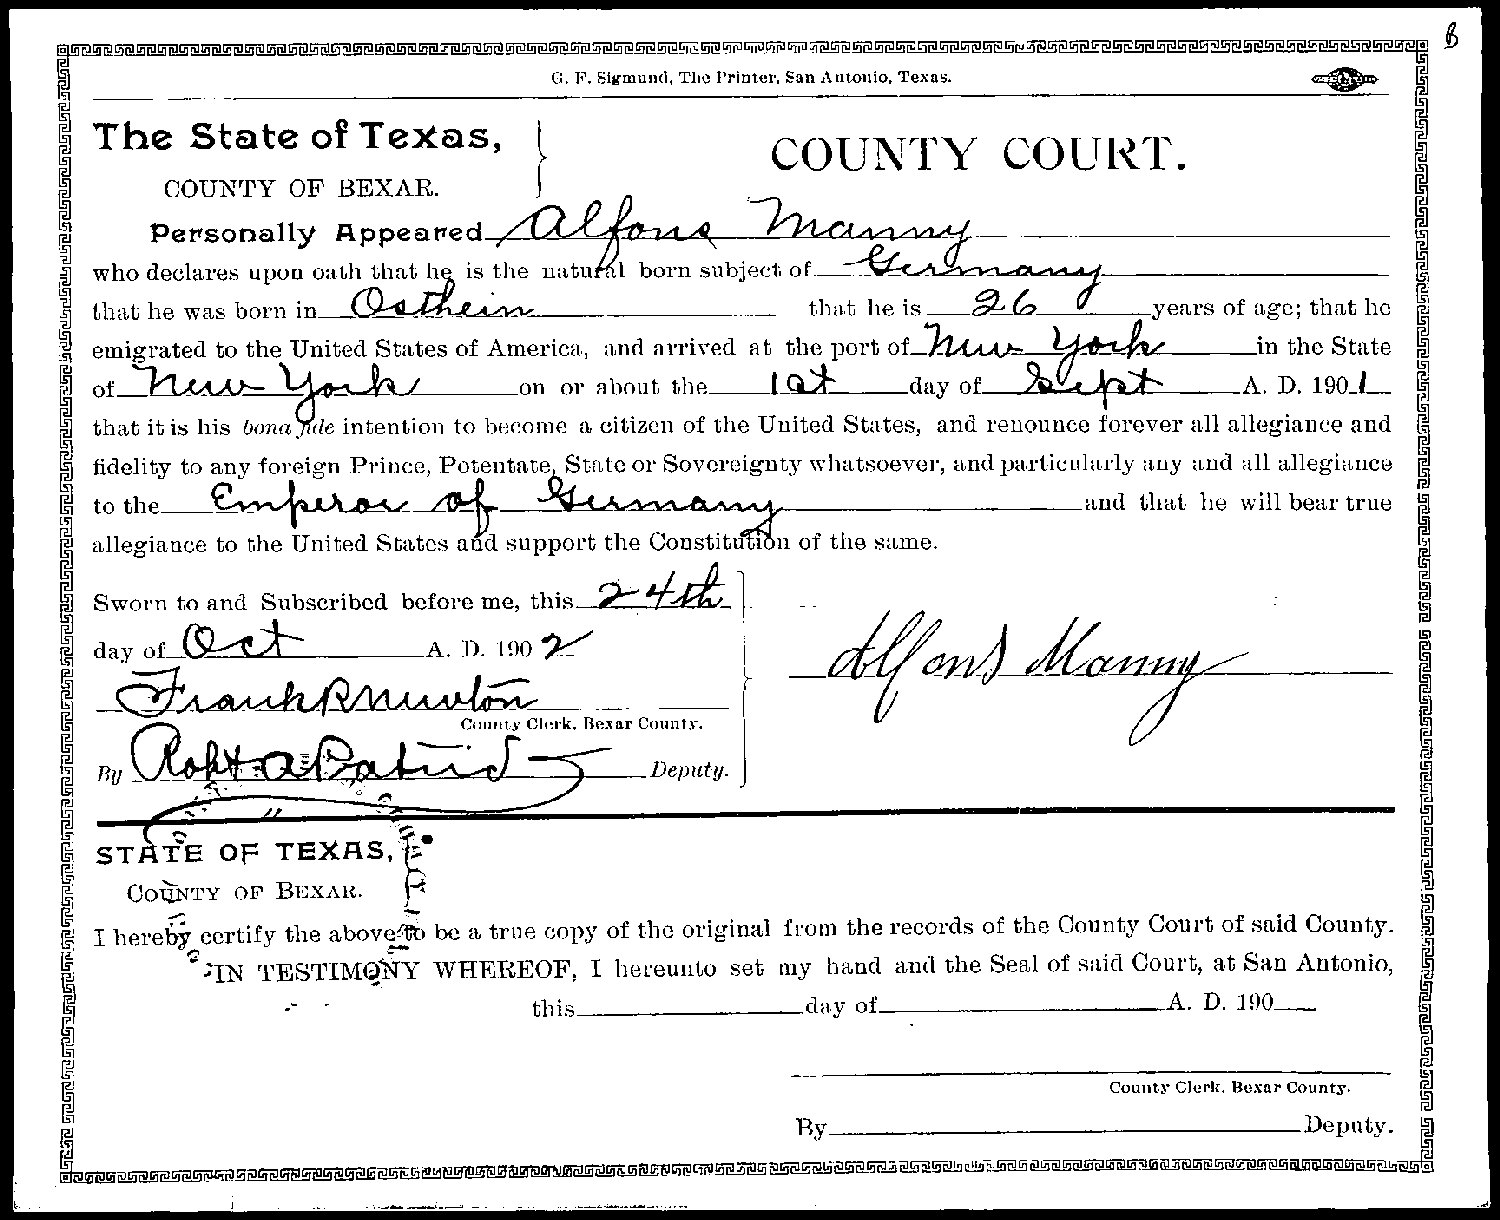 B
G. F. Sigmund, The Printer, San Antonio, Texas.
The State of Texas,
COUNTY OF BEXAR.
COUNTY COURT.
Personally Appeared Alfons Manny
who declares upon oath that he is the natural born subject of Germany
that he was born in Osthein that he is 26 years of age; that he
emigrated to the United States of America, and arrived at the port of New York in the State
of New York on or about the 1st day of Sept A. D. 1901
that it is his bona fide intention to become a citizen of the United States, and renounce forever all allegiance and
fidelity to any foreign Prince, Potentate, State or Sovereignty whatsoever, and particularly any and all allegiance
to the Emperor of Germany and that he will bear true
allegiance to the United States and support the Constitution of the same.
Sworn to and Subscribed before me, this 24th
day of Oct A. D. 1902
Alfons Manny
Frank R Newton
County Clerk, Bexar County.
By Robt Deputy.
STATE OF TEXAS,
COUNTY OF BEXAR.
I hereby certify the above to be a true copy of the original from the records of the County Court of said County.
IN TESTIMONY WHEREOF, I hereunto set my hand and the Seal of said Court, at San Antonio,
this day of A. D. 190
County Clerk, Bexar County.
By Deputy.